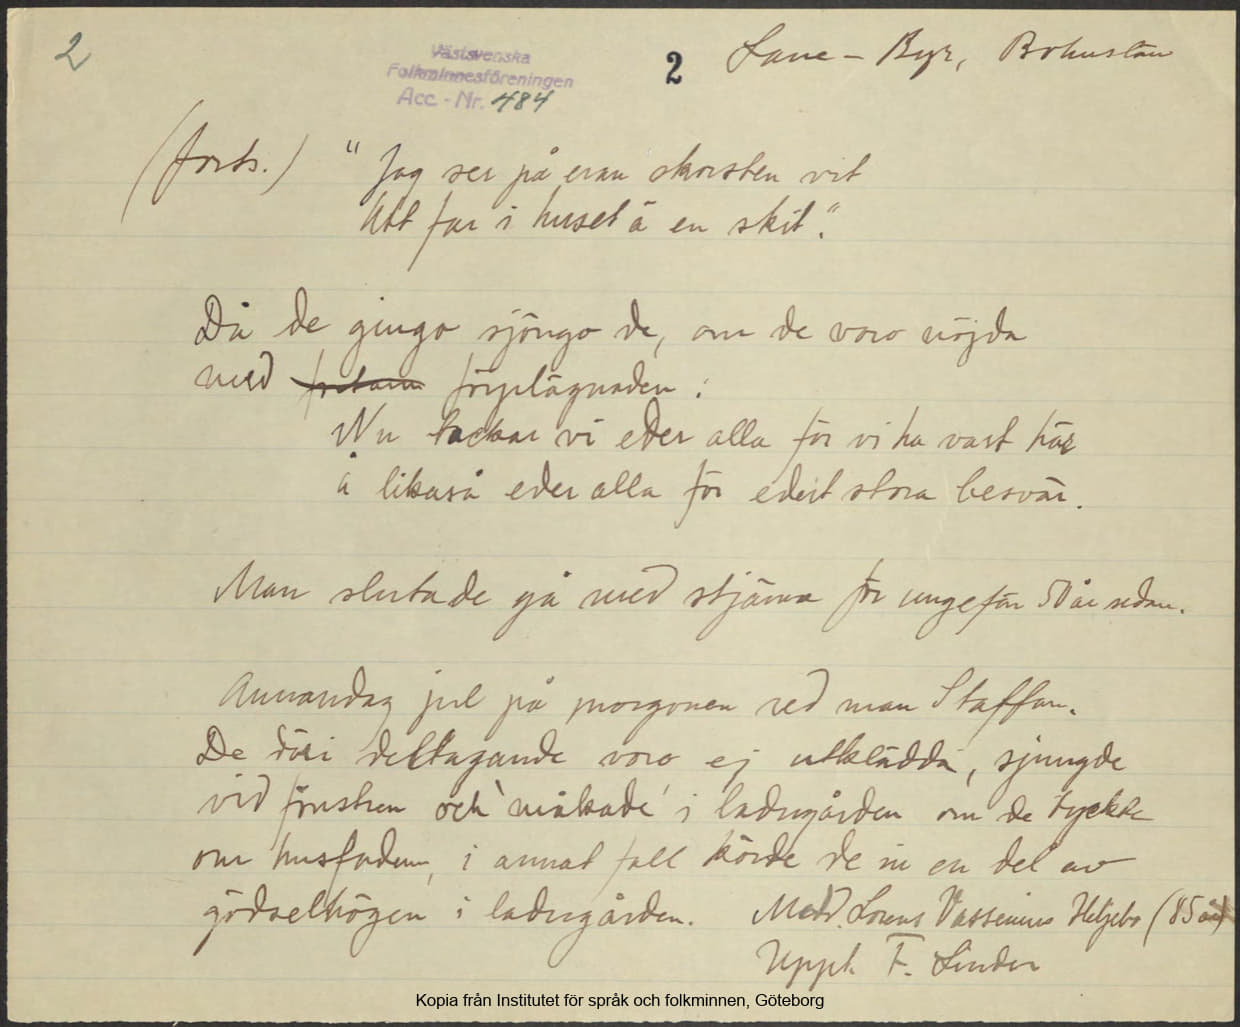 2
Västsvenska
Folkminnesföreningen
Acc. - Nr. 484
2
Lane - Ryr, Bohuslän
(forts.) "Jag ser på eran skorsten vit
Att far i huset ä en skit."
Då de gingo sjöngo de, om de voro nöjda
med förplägnaden:
Nu tackar vi eder alla för vi ha vart här
å likaså eder alla för edert stora besvär.
Man slutade gå med stjärna för ungefär 50 år sedan.
Annandag jul på morgonen red man Staffan.
De däri deltagande voro ej utklädda, sjungde
vid fönstren och 'måkade' i ladugården om de tyckte
om husfadern, i annat fall körde de in en del av
gödselhögen i ladugården.
Medd. Lorens Vassenius Heljebo (85 år)
Uppt. F. Linder
Kopia från Institutet för språk och folkminnen, Göteborg